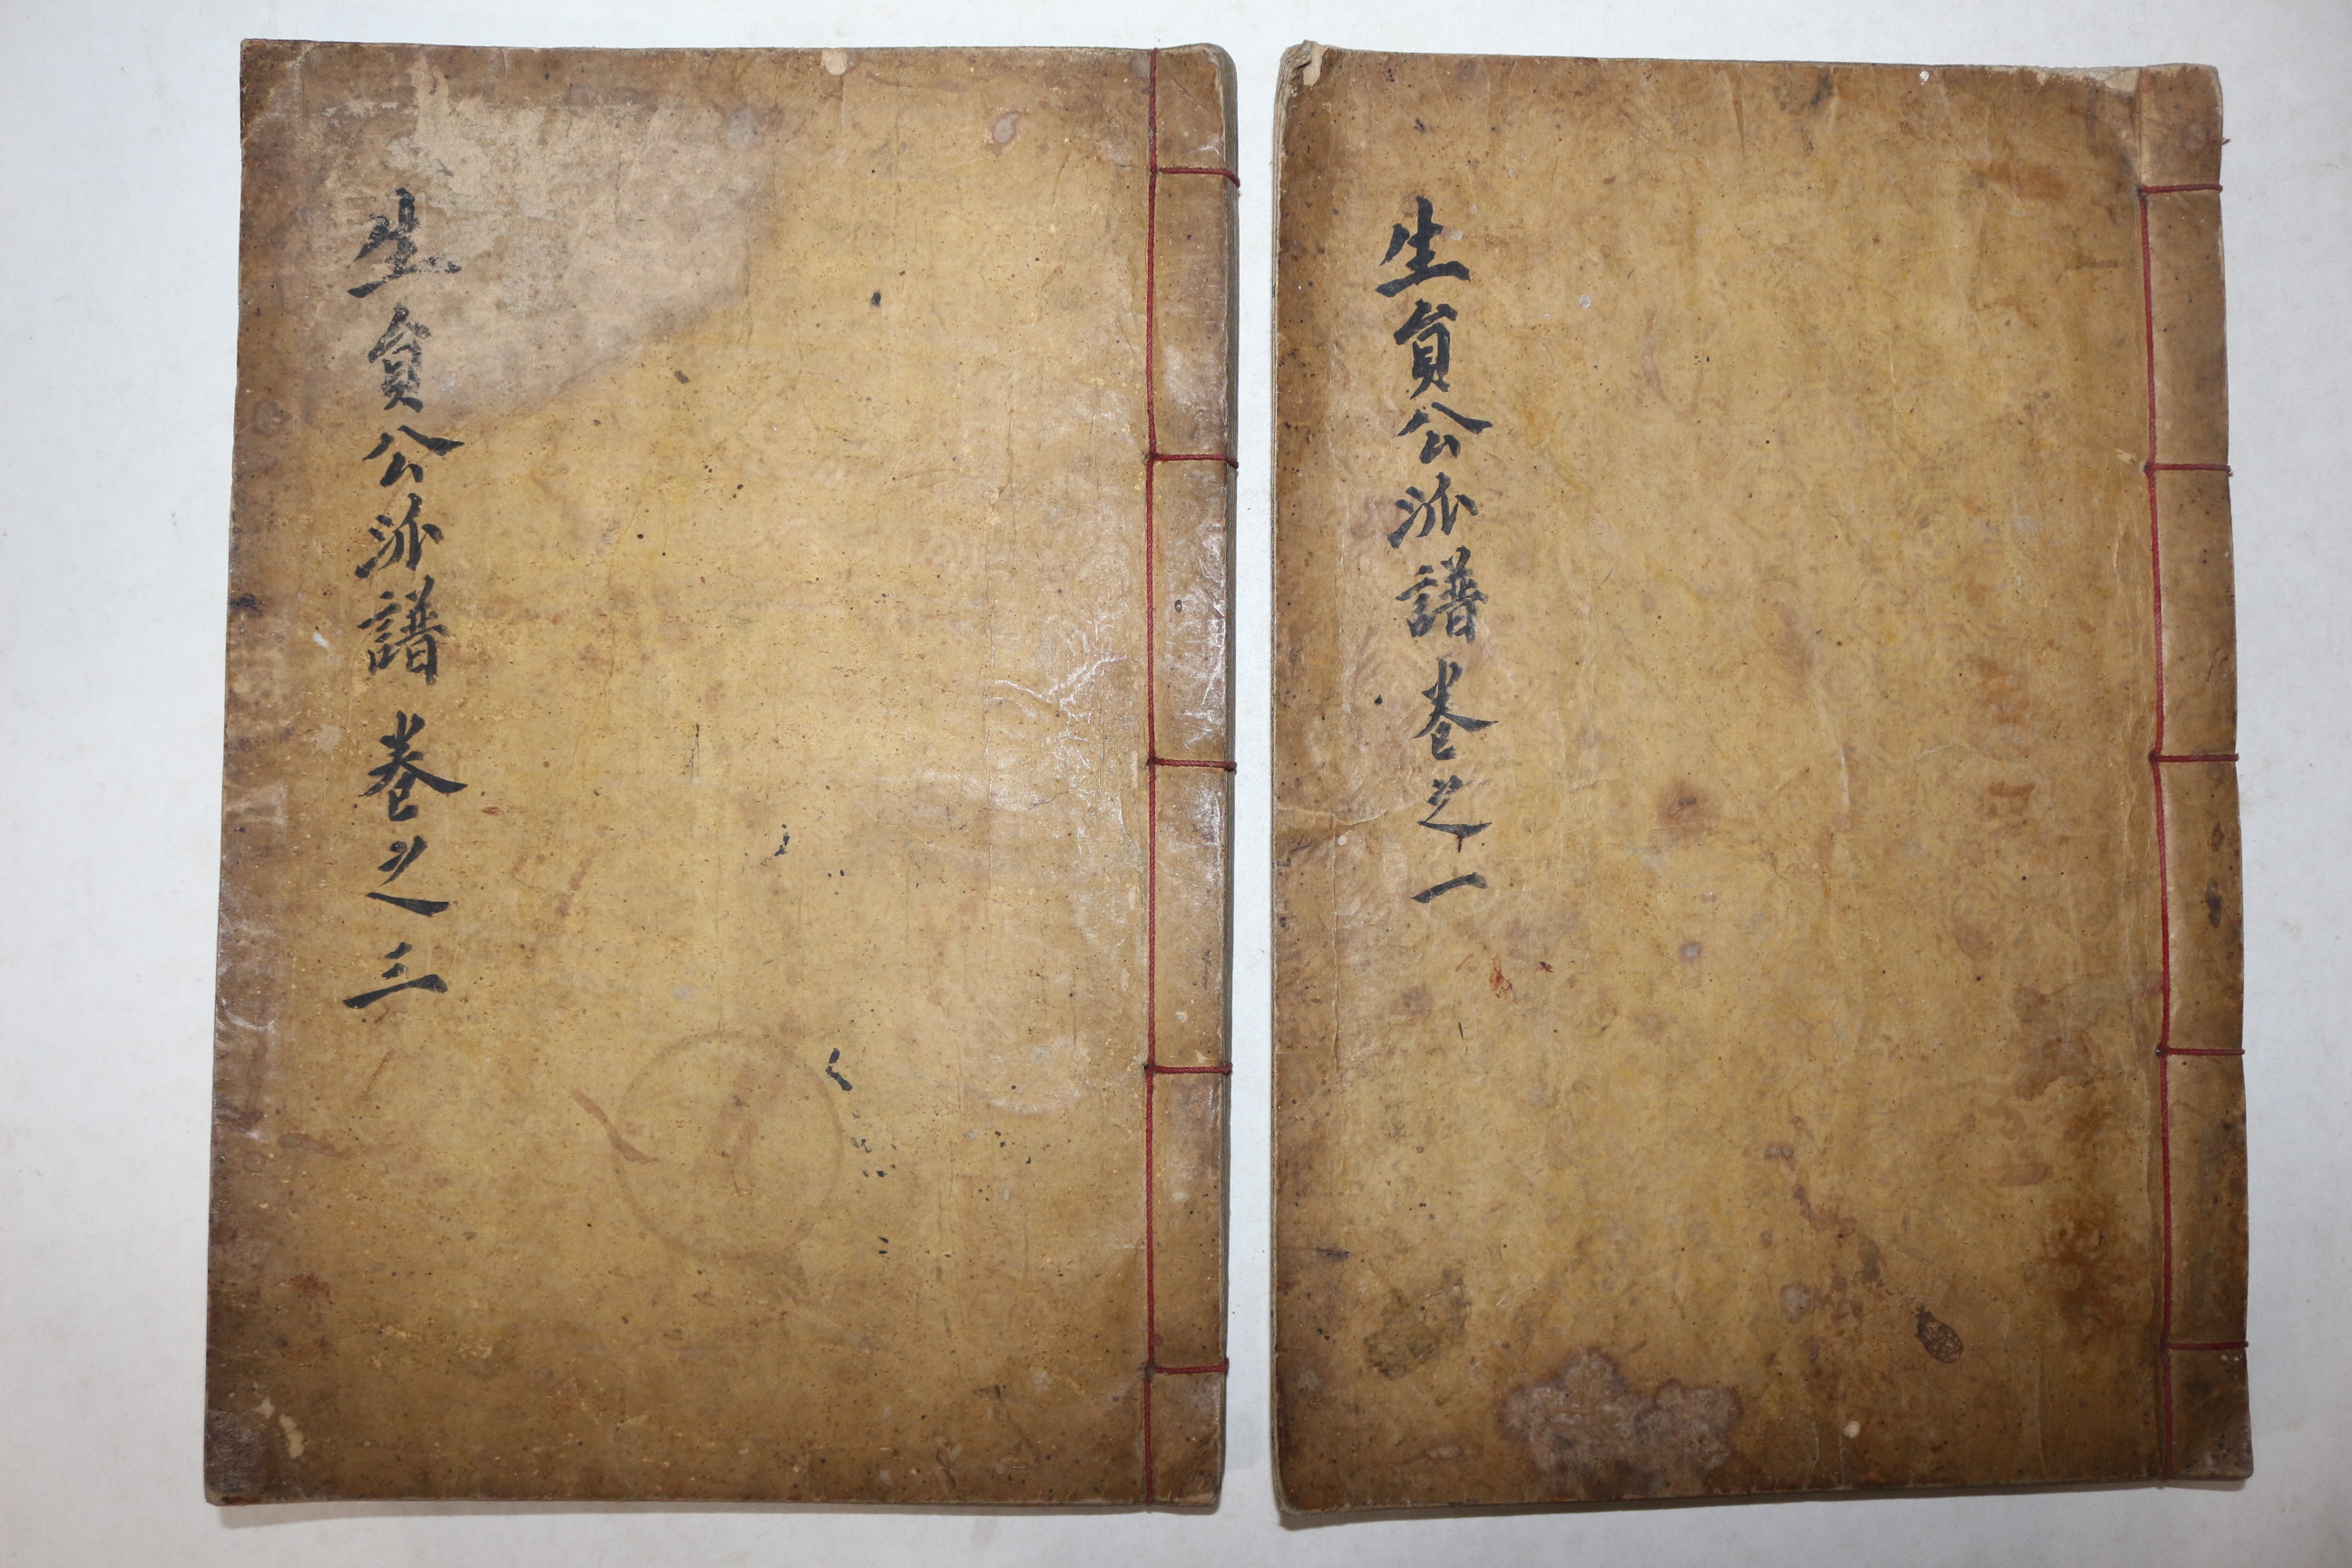 生員公派譜卷之一
生員公派譜 卷之三